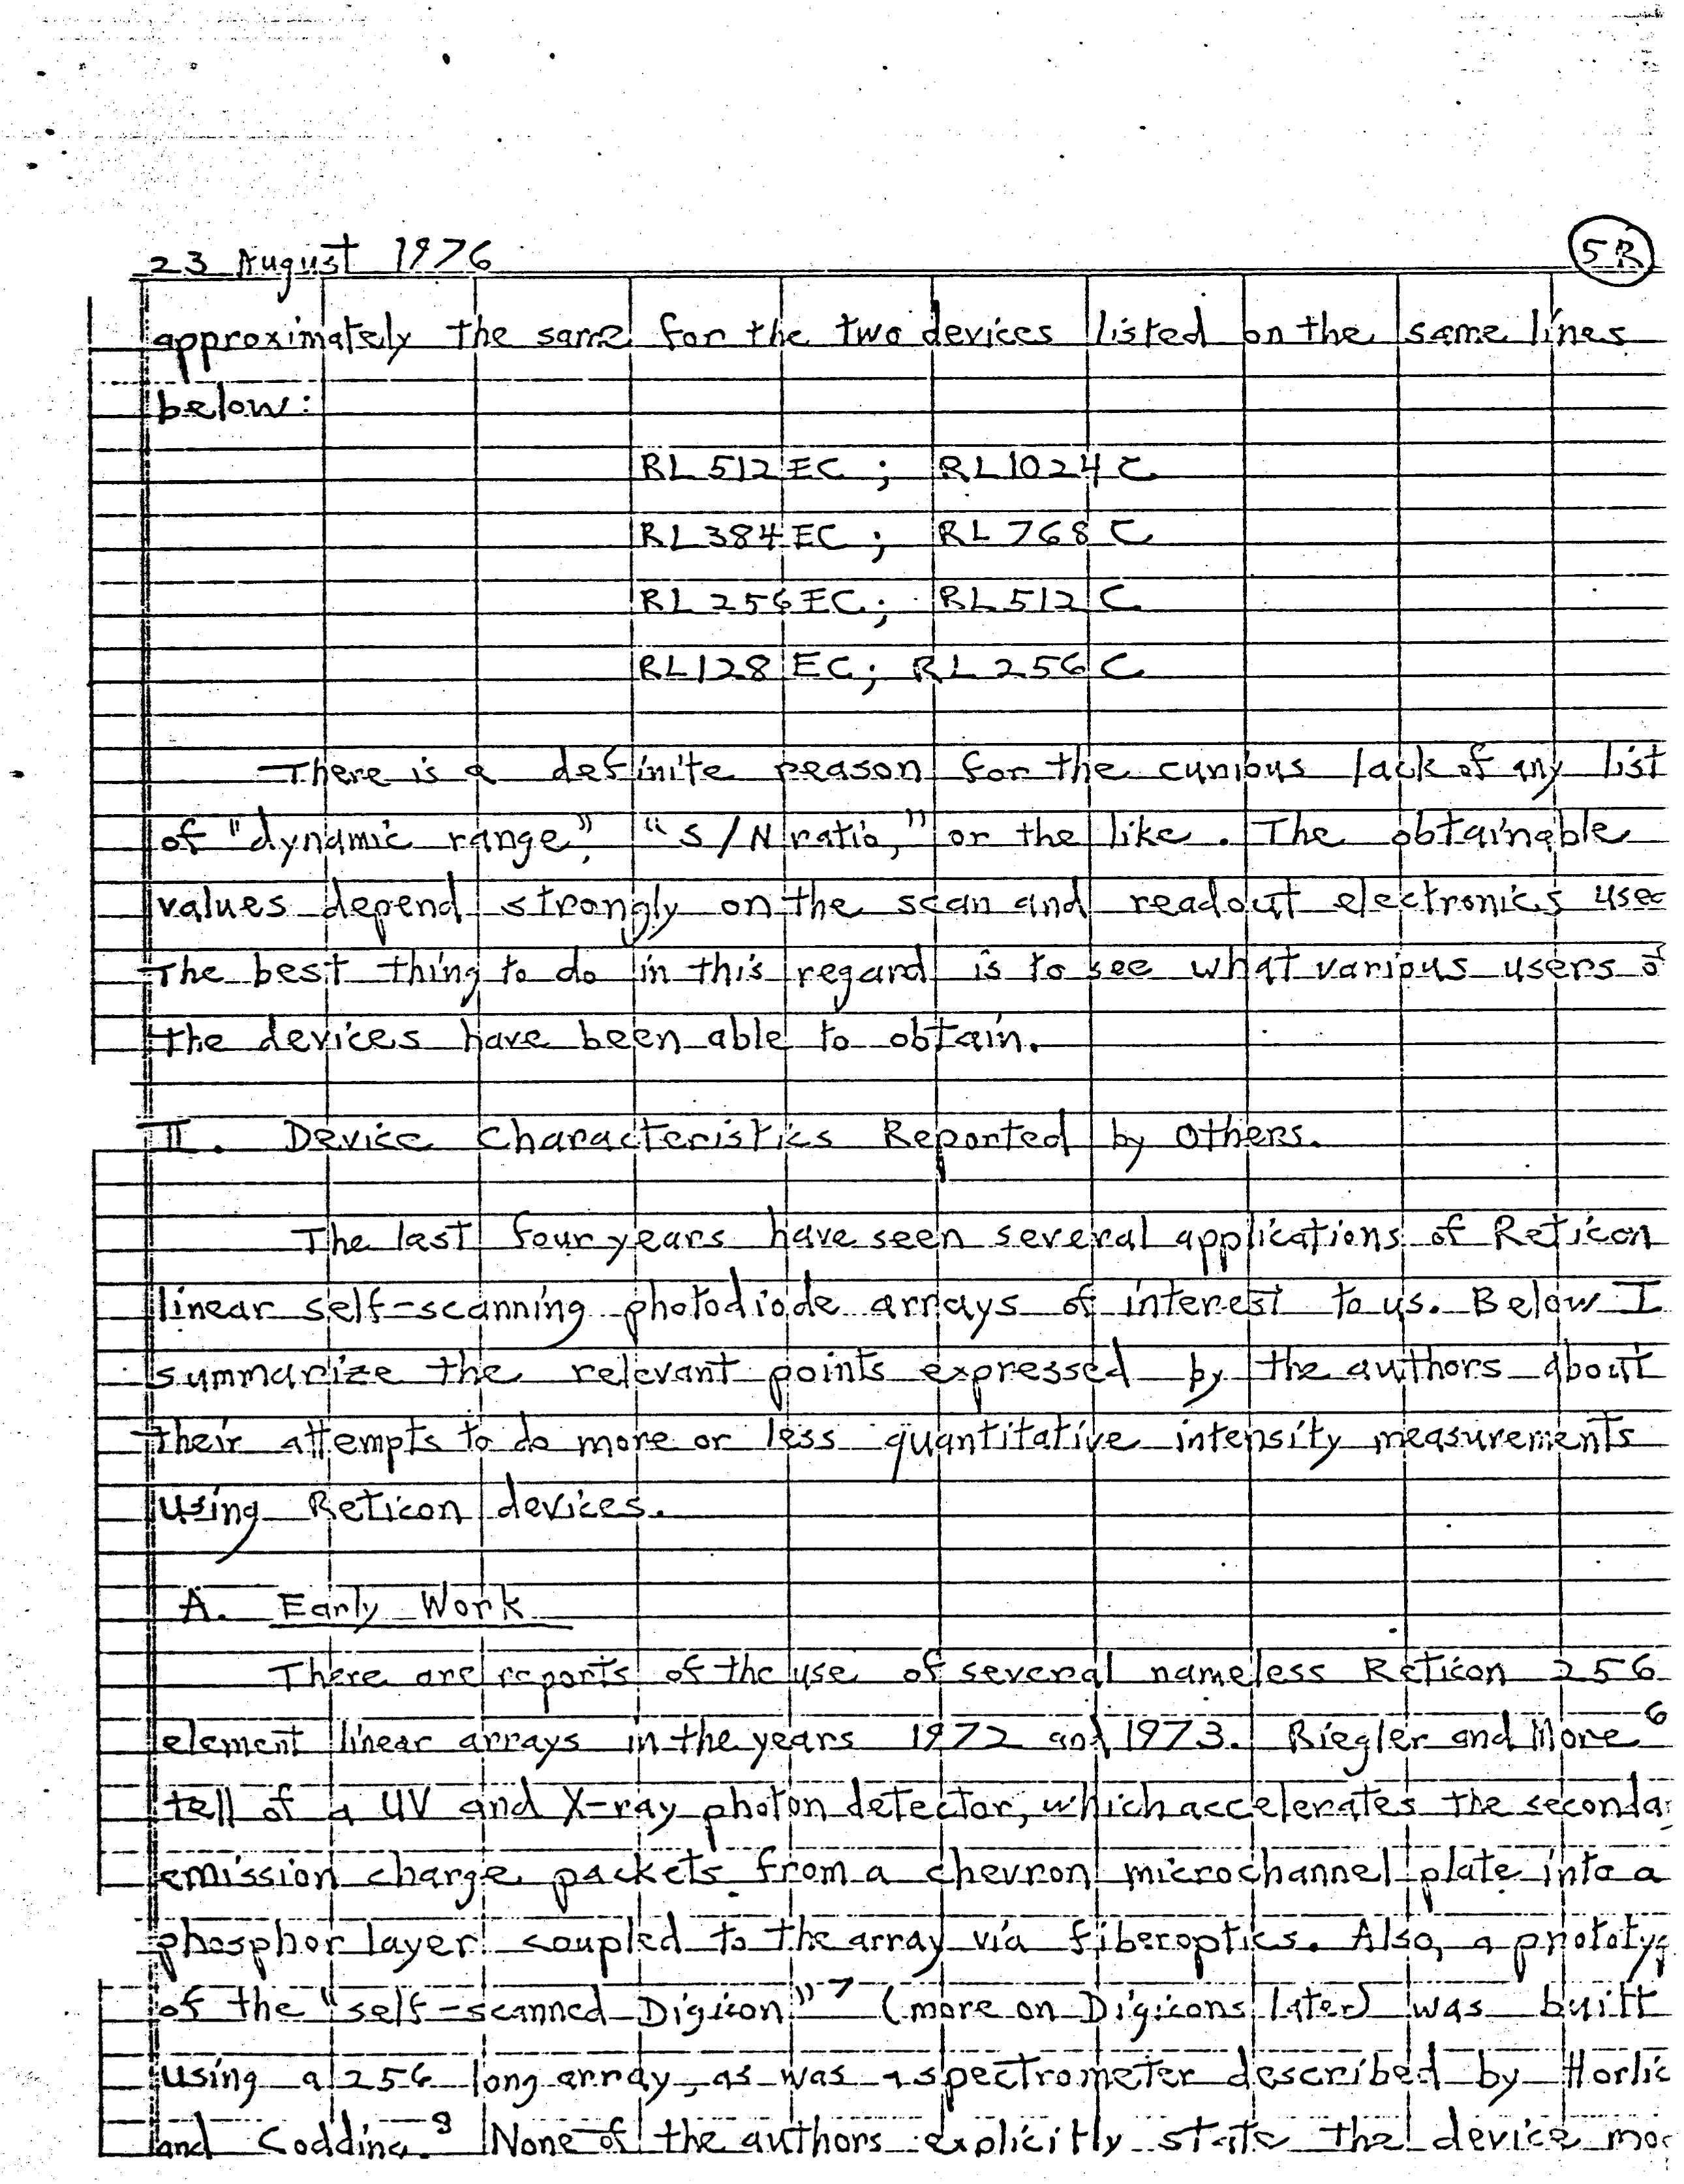 23 August 1976
5R
approximately the same for the two devices listed on the same lines
below:
RL 512 EC ; RL 1024 C
RL 384 EC ; RL 768 C
RL 256 EC ; RL 512 C
RL 128 EC ; RL 256 C
There is a definite reason for the curious lack of any list
of "dynamic range," "S/N ratio," or the like. The obtainable
values depend strongly on the scan and readout electronics use
The best thing to do in this regard is to see what various users o
the devices have been able to obtain.
II. Device Characteristics Reported by Others.
The last four years have seen several applications of Reticon
linear self-scanning photodiode arrays of interest to us. Below I
summarize the relevant points expressed by the authors about
their attempts to do more or less quantitative intensity measurements
using Reticon devices.
A. Early Work
There are reports of the use of several nameless Reticon 256
element linear arrays in the years 1972 and 1973. Riegler and More 6
tell of a UV and X-ray photon detector, which accelerates the seconda
emission charge packets from a chevron microchannel plate into a
phosphor layer coupled to the array via fiberoptics. Also, a prototyp
of the "self-scanned Digicon" 7 (more on Digicons later) was built
using a 256 long array, as was a spectrometer described by Horlic
and Codding. 8 None of the authors explicitly state the device mo